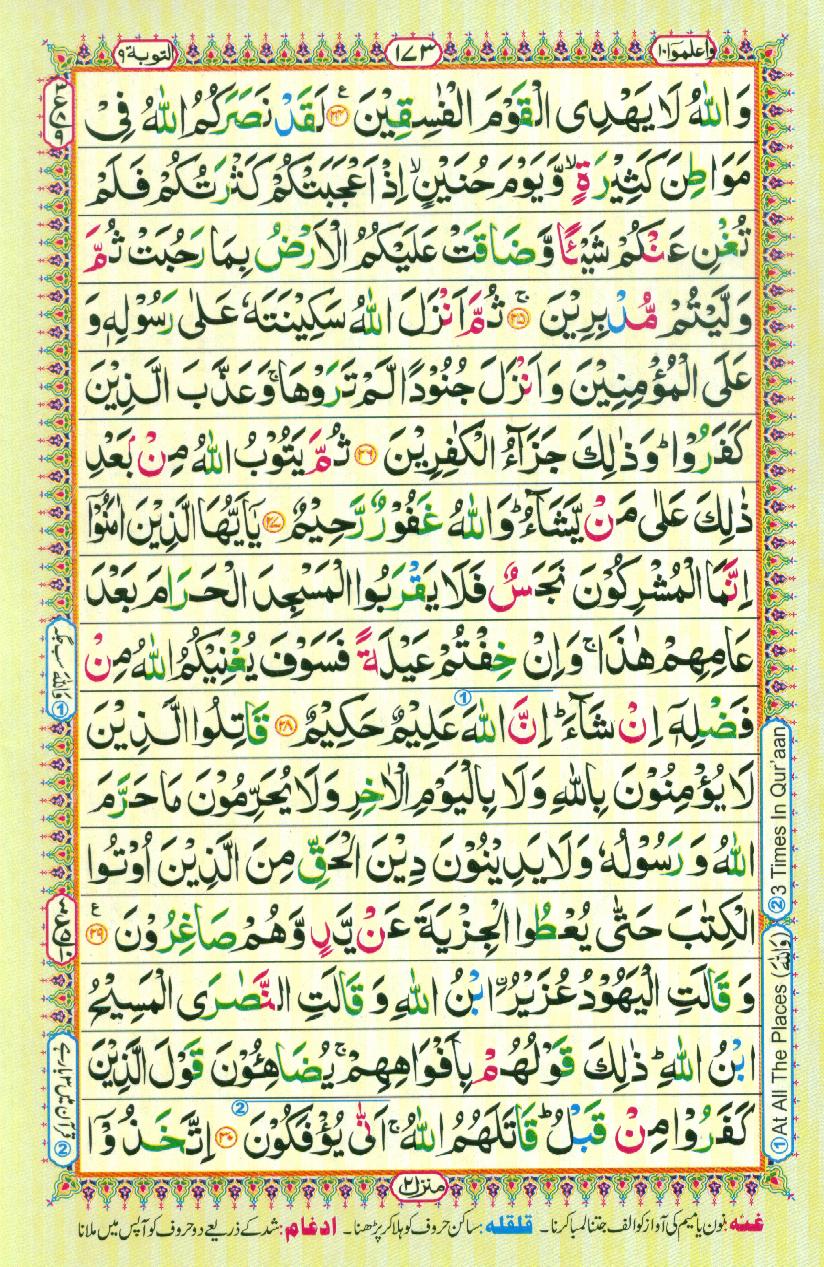 واعلموا۱۰
۱۷۳
التوبة۹
وَاللّٰهُ لَا يَهْدِى الْقَوْمَ الْفٰسِقِيْنَ ﴿۲۴﴾ لَقَدْ نَصَرَكُمُ اللّٰهُ فِىْ
مَوَاطِنَ كَثِيْرَةٍ ۙ وَّيَوْمَ حُنَيْنٍ ۙ اِذْ اَعْجَبَتْكُمْ كَثْرَتُكُمْ فَلَمْ
تُغْنِ عَنْكُمْ شَيْـًٔا وَّضَاقَتْ عَلَيْكُمُ الْاَرْضُ بِمَا رَحُبَتْ ثُمَّ
وَلَّيْتُمْ مُّدْبِرِيْنَ ﴿۲۵﴾ ثُمَّ اَنْزَلَ اللّٰهُ سَكِيْنَتَهٗ عَلٰى رَسُوْلِهٖ وَ
عَلَى الْمُؤْمِنِيْنَ وَاَنْزَلَ جُنُوْدًا لَّمْ تَرَوْهَا ۚ وَعَذَّبَ الَّذِيْنَ
كَفَرُوْا ؕ وَذٰلِكَ جَزَآءُ الْكٰفِرِيْنَ ﴿۲۶﴾ ثُمَّ يَتُوْبُ اللّٰهُ مِنْۢ بَعْدِ
ذٰلِكَ عَلٰى مَنْ يَّشَآءُ ؕ وَاللّٰهُ غَفُوْرٌ رَّحِيْمٌ ﴿۲۷﴾ يٰۤاَيُّهَا الَّذِيْنَ اٰمَنُوْۤا
اِنَّمَا الْمُشْرِكُوْنَ نَجَسٌ فَلَا يَقْرَبُوا الْمَسْجِدَ الْحَرَامَ بَعْدَ
عَامِهِمْ هٰذَا ۚ وَاِنْ خِفْتُمْ عَيْلَةً فَسَوْفَ يُغْنِيْكُمُ اللّٰهُ مِنْ
فَضْلِهٖۤ اِنْ شَآءَ ؕ اِنَّ اللّٰهَ عَلِيْمٌ حَكِيْمٌ ﴿۲۸﴾ قَاتِلُوا الَّذِيْنَ
لَا يُؤْمِنُوْنَ بِاللّٰهِ وَلَا بِالْيَوْمِ الْاٰخِرِ وَلَا يُحَرِّمُوْنَ مَا حَرَّمَ
اللّٰهُ وَرَسُوْلُهٗ وَلَا يَدِيْنُوْنَ دِيْنَ الْحَقِّ مِنَ الَّذِيْنَ اُوْتُوا
الْكِتٰبَ حَتّٰى يُعْطُوا الْجِزْيَةَ عَنْ يَّدٍ وَّهُمْ صَاغِرُوْنَ ﴿۲۹﴾
وَقَالَتِ الْيَهُوْدُ عُزَيْرُ ۨ ابْنُ اللّٰهِ وَقَالَتِ النَّصٰرَى الْمَسِيْحُ
ابْنُ اللّٰهِ ؕ ذٰلِكَ قَوْلُهُمْ بِاَفْوَاهِهِمْ ۚ يُضَاهِـُٔوْنَ قَوْلَ الَّذِيْنَ
كَفَرُوْا مِنْ قَبْلُ ؕ قَاتَلَهُمُ اللّٰهُ ۚ اَنّٰى يُؤْفَكُوْنَ ﴿۳۰﴾ اِتَّخَذُوْۤا
منزل ۲
غنہ: نون یا میم کی آواز کو الف جتنا لمبا کرنا۔ قلقلہ: ساکن حروف کو ہلا کر پڑھنا۔ ادغام: شد کے ذریعے دو حروف کو آپس میں ملانا
① At All The Places (وَاللّٰهُ) ② 3 Times In Qur'aan